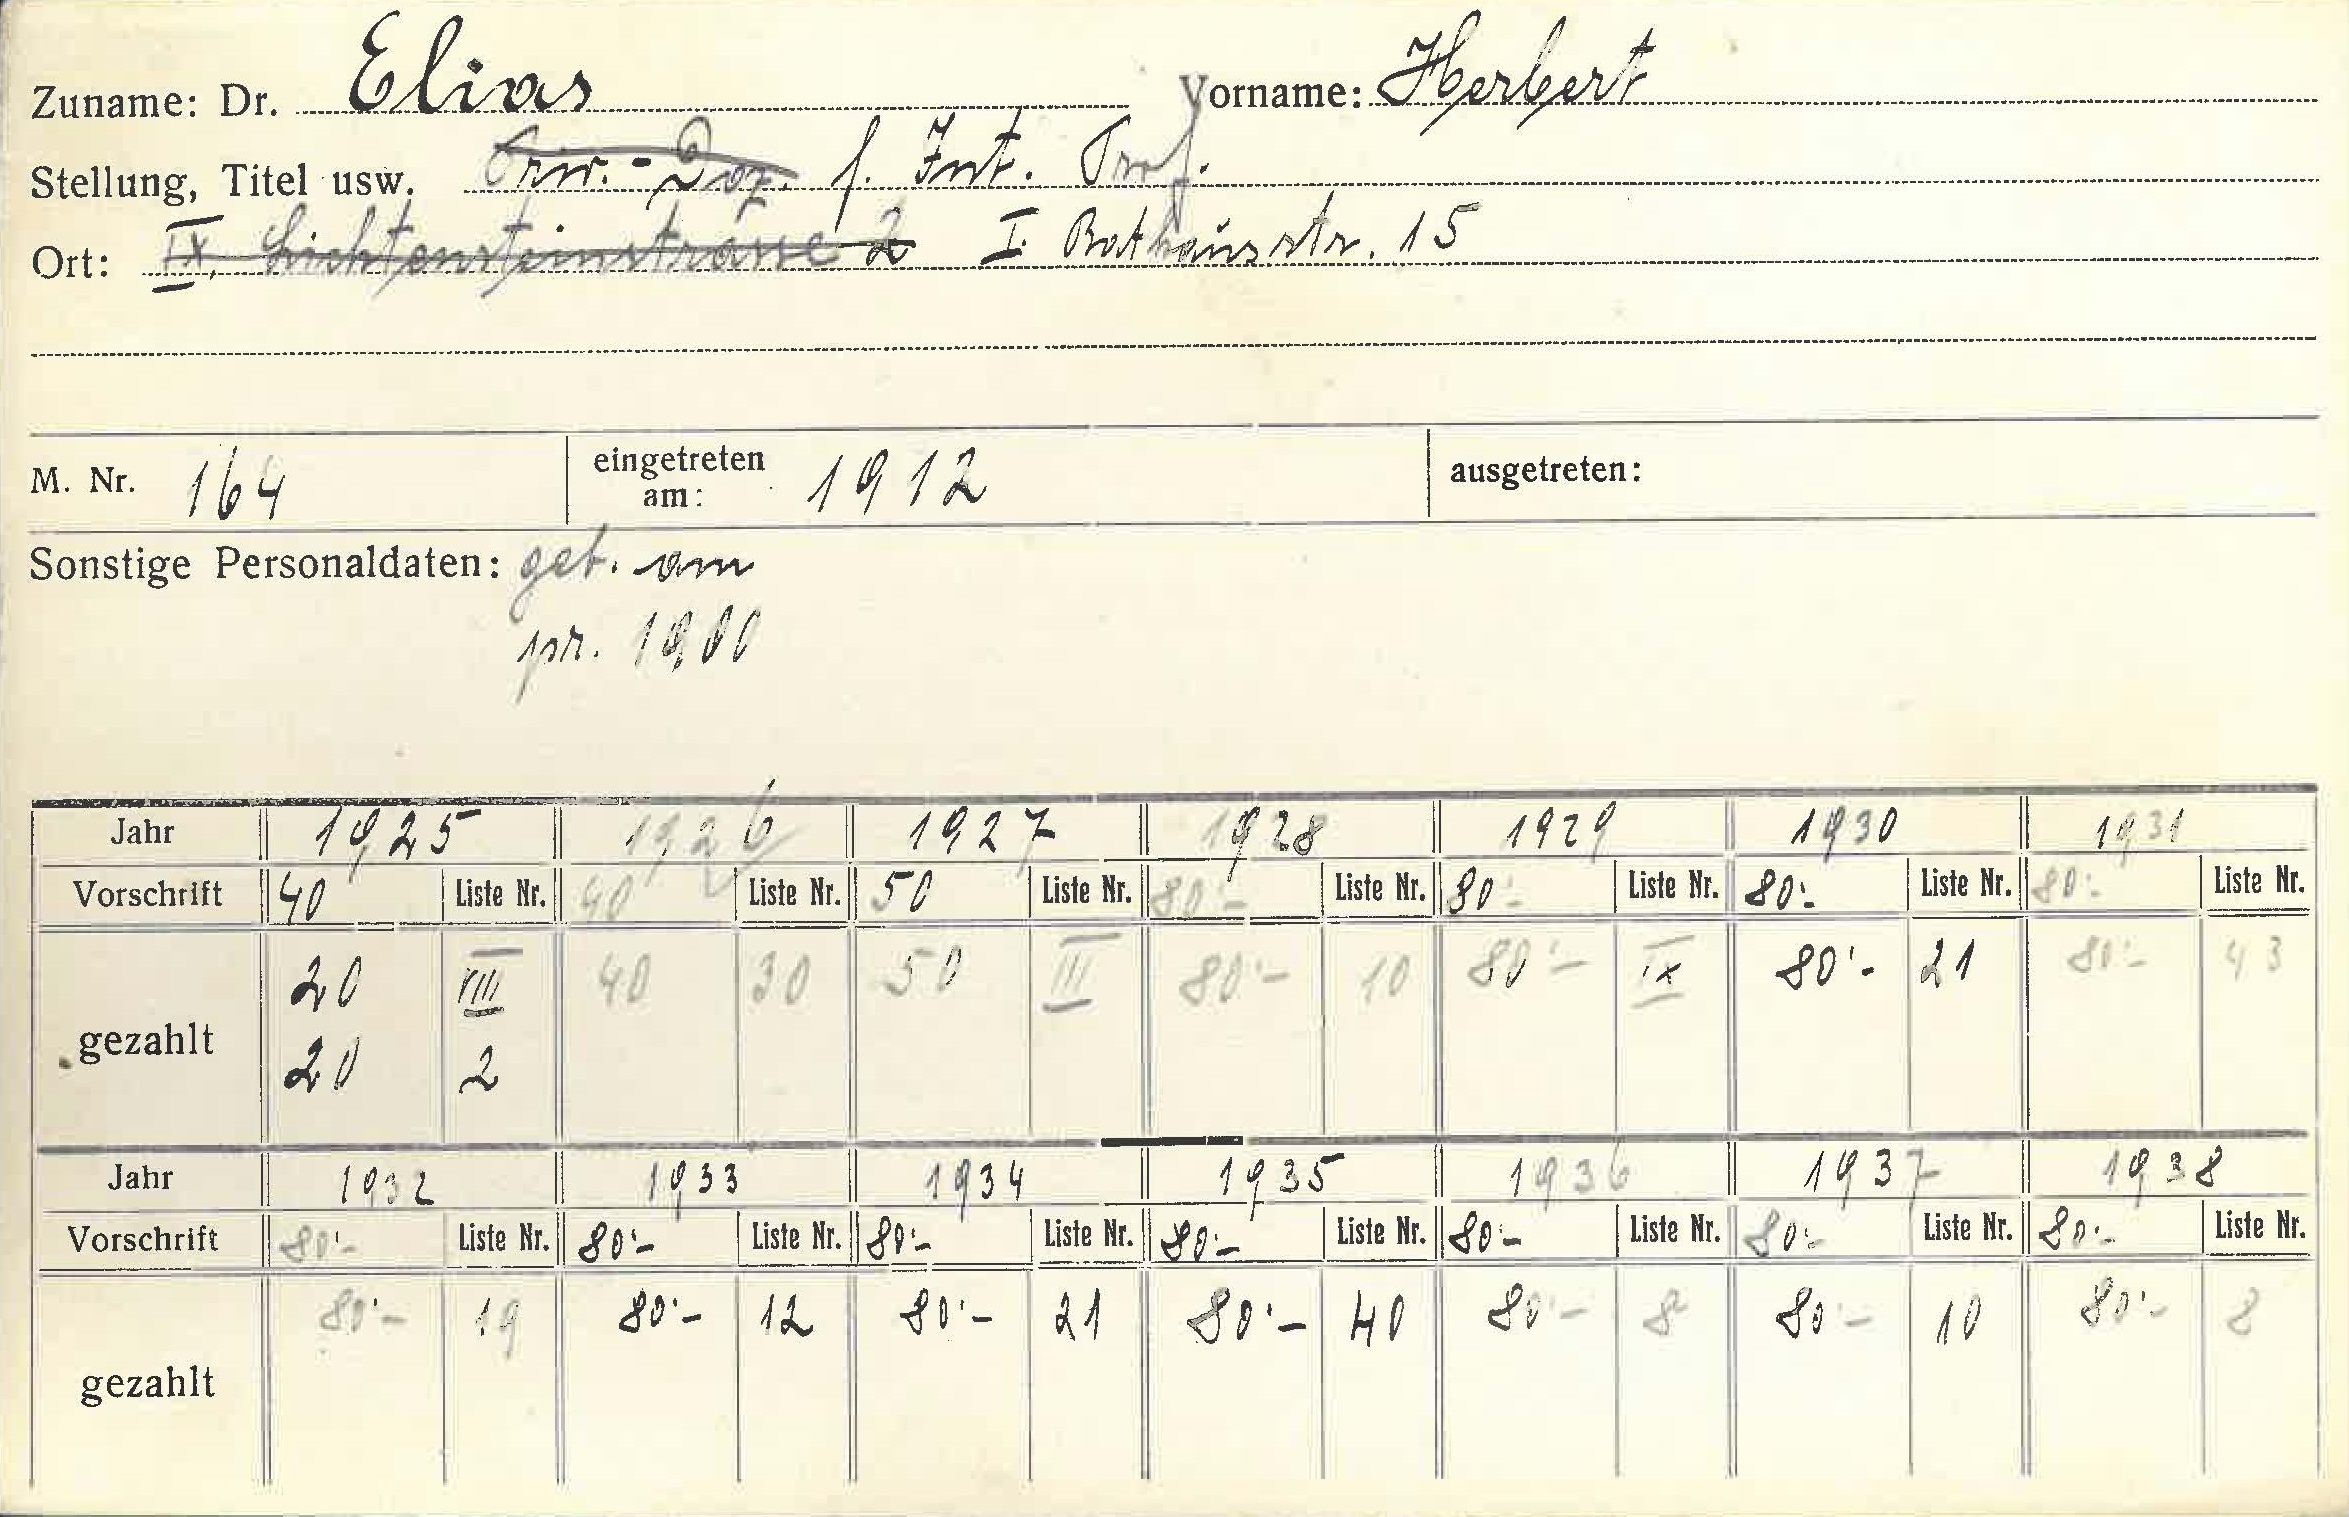 Zuname: Dr. Elias Vorname: Herbert
Stellung, Titel usw. Priv.-Doz. f. Int. Prof.
Ort: IX, Lichtensteinstrasse 2 I. Rathausstr. 15
M. Nr. 164 eingetreten am: 1912 ausgetreten:
Sonstige Personaldaten: geb. am
pr. 1900
Jahr 1925 1926 1927 1928 1929 1930 1931
Vorschrift 40 Liste Nr. 40 Liste Nr. 50 Liste Nr. 80·- Liste Nr. 80·- Liste Nr. 80·- Liste Nr. 80·- Liste Nr.
gezahlt 20 VIII 40 30 50 III 80·- 10 80·- IX 80·- 21 80·- 43
20 2
Jahr 1932 1933 1934 1935 1936 1937 1938
Vorschrift 80·- Liste Nr. 80·- Liste Nr. 80·- Liste Nr. 80·- Liste Nr. 80·- Liste Nr. 80·- Liste Nr. 80·- Liste Nr.
gezahlt 80·- 19 80·- 12 80·- 21 80·- 40 80·- 8 80·- 10 80·- 8